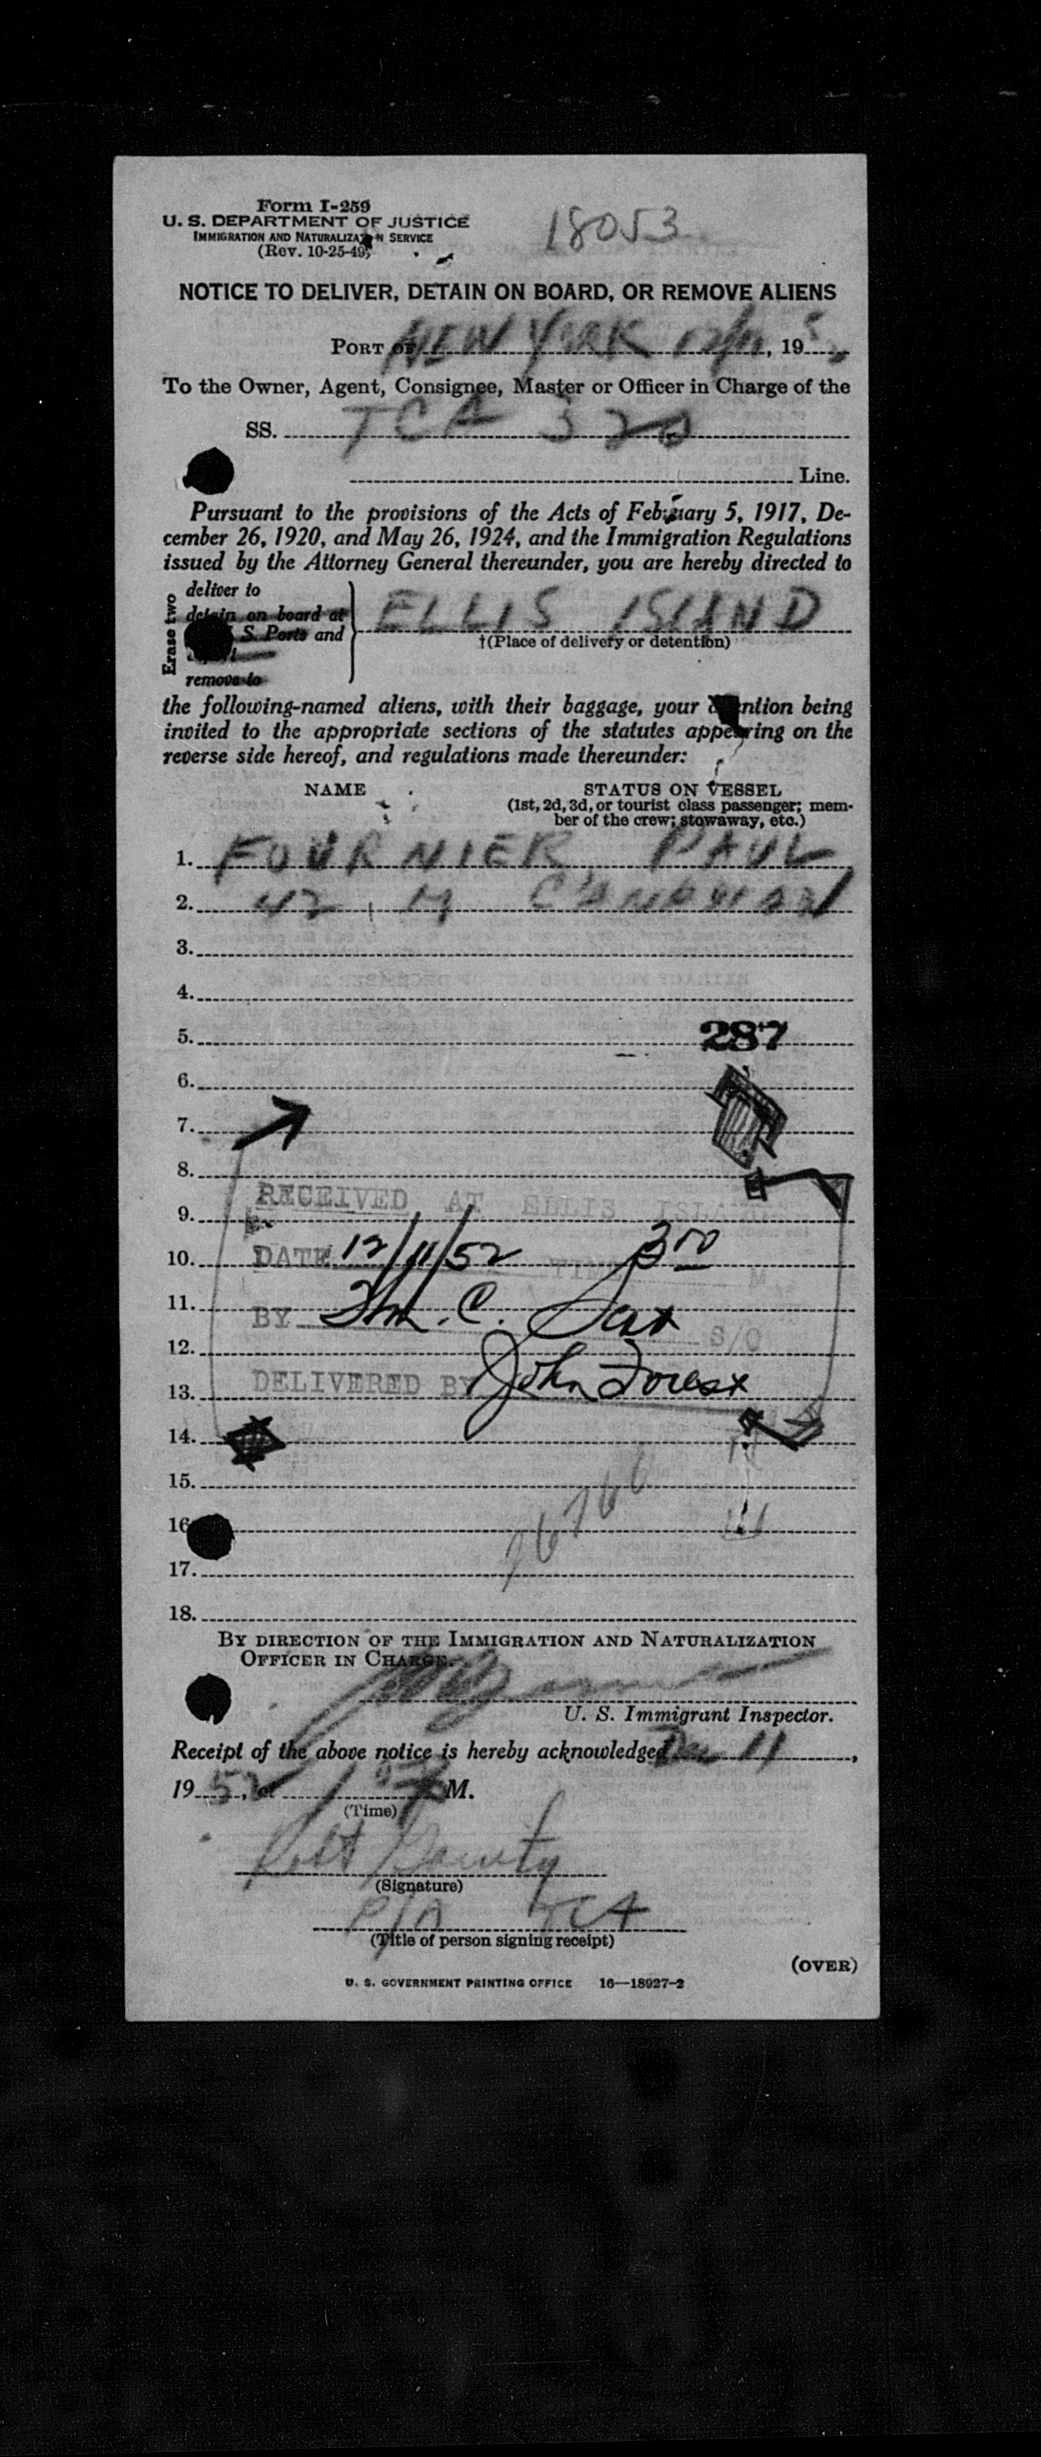 Form I-259
U. S. DEPARTMENT OF JUSTICE
IMMIGRATION AND NATURALIZATION SERVICE
(Rev. 10-25-49)
18053
NOTICE TO DELIVER, DETAIN ON BOARD, OR REMOVE ALIENS
PORT OF NEW YORK 12/11, 195
To the Owner, Agent, Consignee, Master or Officer in Charge of the
SS. TCA 320
Line.
Pursuant to the provisions of the Acts of February 5, 1917, De-
cember 26, 1920, and May 26, 1924, and the Immigration Regulations
issued by the Attorney General thereunder, you are hereby directed to
Erase two
deliver to
detain on board at
S. Ports and
remove to
ELLIS ISLAND
†(Place of delivery or detention)
the following-named aliens, with their baggage, your attention being
invited to the appropriate sections of the statutes appearing on the
reverse side hereof, and regulations made thereunder:
NAME STATUS ON VESSEL
(1st, 2d, 3d, or tourist class passenger; mem-
ber of the crew; stowaway, etc.)
1. FOURNIER PAUL
2. 42 M CANADIAN
3.
4.
5. 287
6.
7.
8.
RECEIVED AT ELLIS ISLAND
9.
10. DATE 12/11/52 TIME 3 00 M.
11. BY Thm. C. Sax S/O
12.
13. DELIVERED BY John Forest
14.
15.
16.
17.
18.
BY DIRECTION OF THE IMMIGRATION AND NATURALIZATION
OFFICER IN CHARGE.
U. S. Immigrant Inspector.
Receipt of the above notice is hereby acknowledged Dec 11,
1952, at 1 M.
(Time)
Robt
(Signature)
P/A TCA
(Title of person signing receipt)
(OVER)
U. S. GOVERNMENT PRINTING OFFICE 16—18927-2